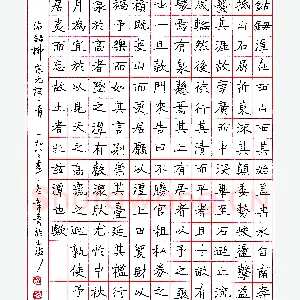 鈷鉧潭在西山西其始蓋冉水自南奔注
抵山石屈折東流其顛委勢峻盪擊益
暴齧其涯故旁廣而中深畢至石乃止
流沫成輪然後徐行其清而平者且十畝
餘有樹環焉有泉懸焉其上有居者以予之亟
遊也一旦款門來告曰不勝官租私券之委
積既芟山而更居願以潭上田貿財以緩
禍予樂而如其言則崇其臺延其檻行其
泉於高者墜之潭有聲潀然尤與中秋觀
月為宜於以見天之高氣之迥孰使予樂
居夷而忘故土者非茲潭也歟